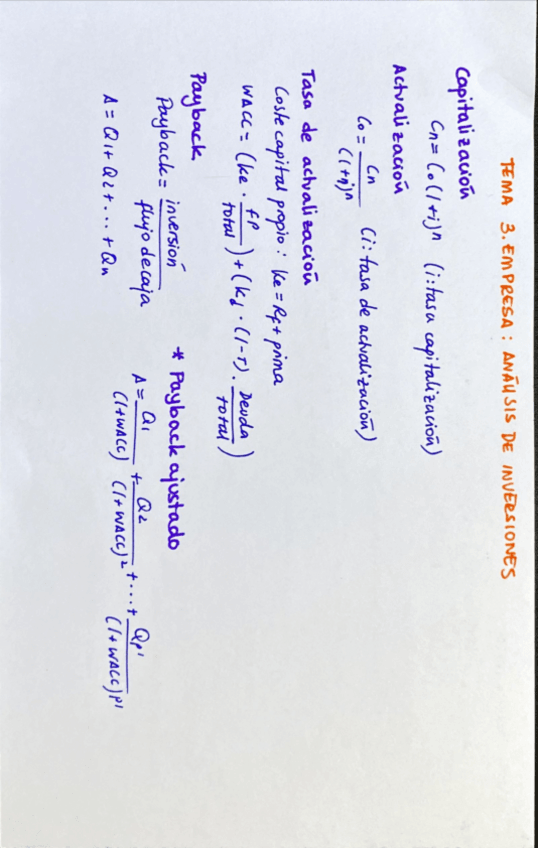 TEMA 3. EMPRESA: ANÁLISIS DE INVERSIONES
Capitalización
Cn = Co (1+i)^n (i: tasa capitalización)
Actualización
Co = Cn / (1+i)^n (i: tasa de actualización)
Tasa de actualización
Coste capital propio: Ke = Rf + prima
WACC = (Ke · FP / total) + (Kd · (1-T) · Deuda / total)
Payback
Payback = inversión / flujo de caja
A = Q1 + Q2 + ... + Qn
* Payback ajustado
A = Q1 / (1+WACC) + Q2 / (1+WACC)^2 + ... + Qp' / (1+WACC)^p'